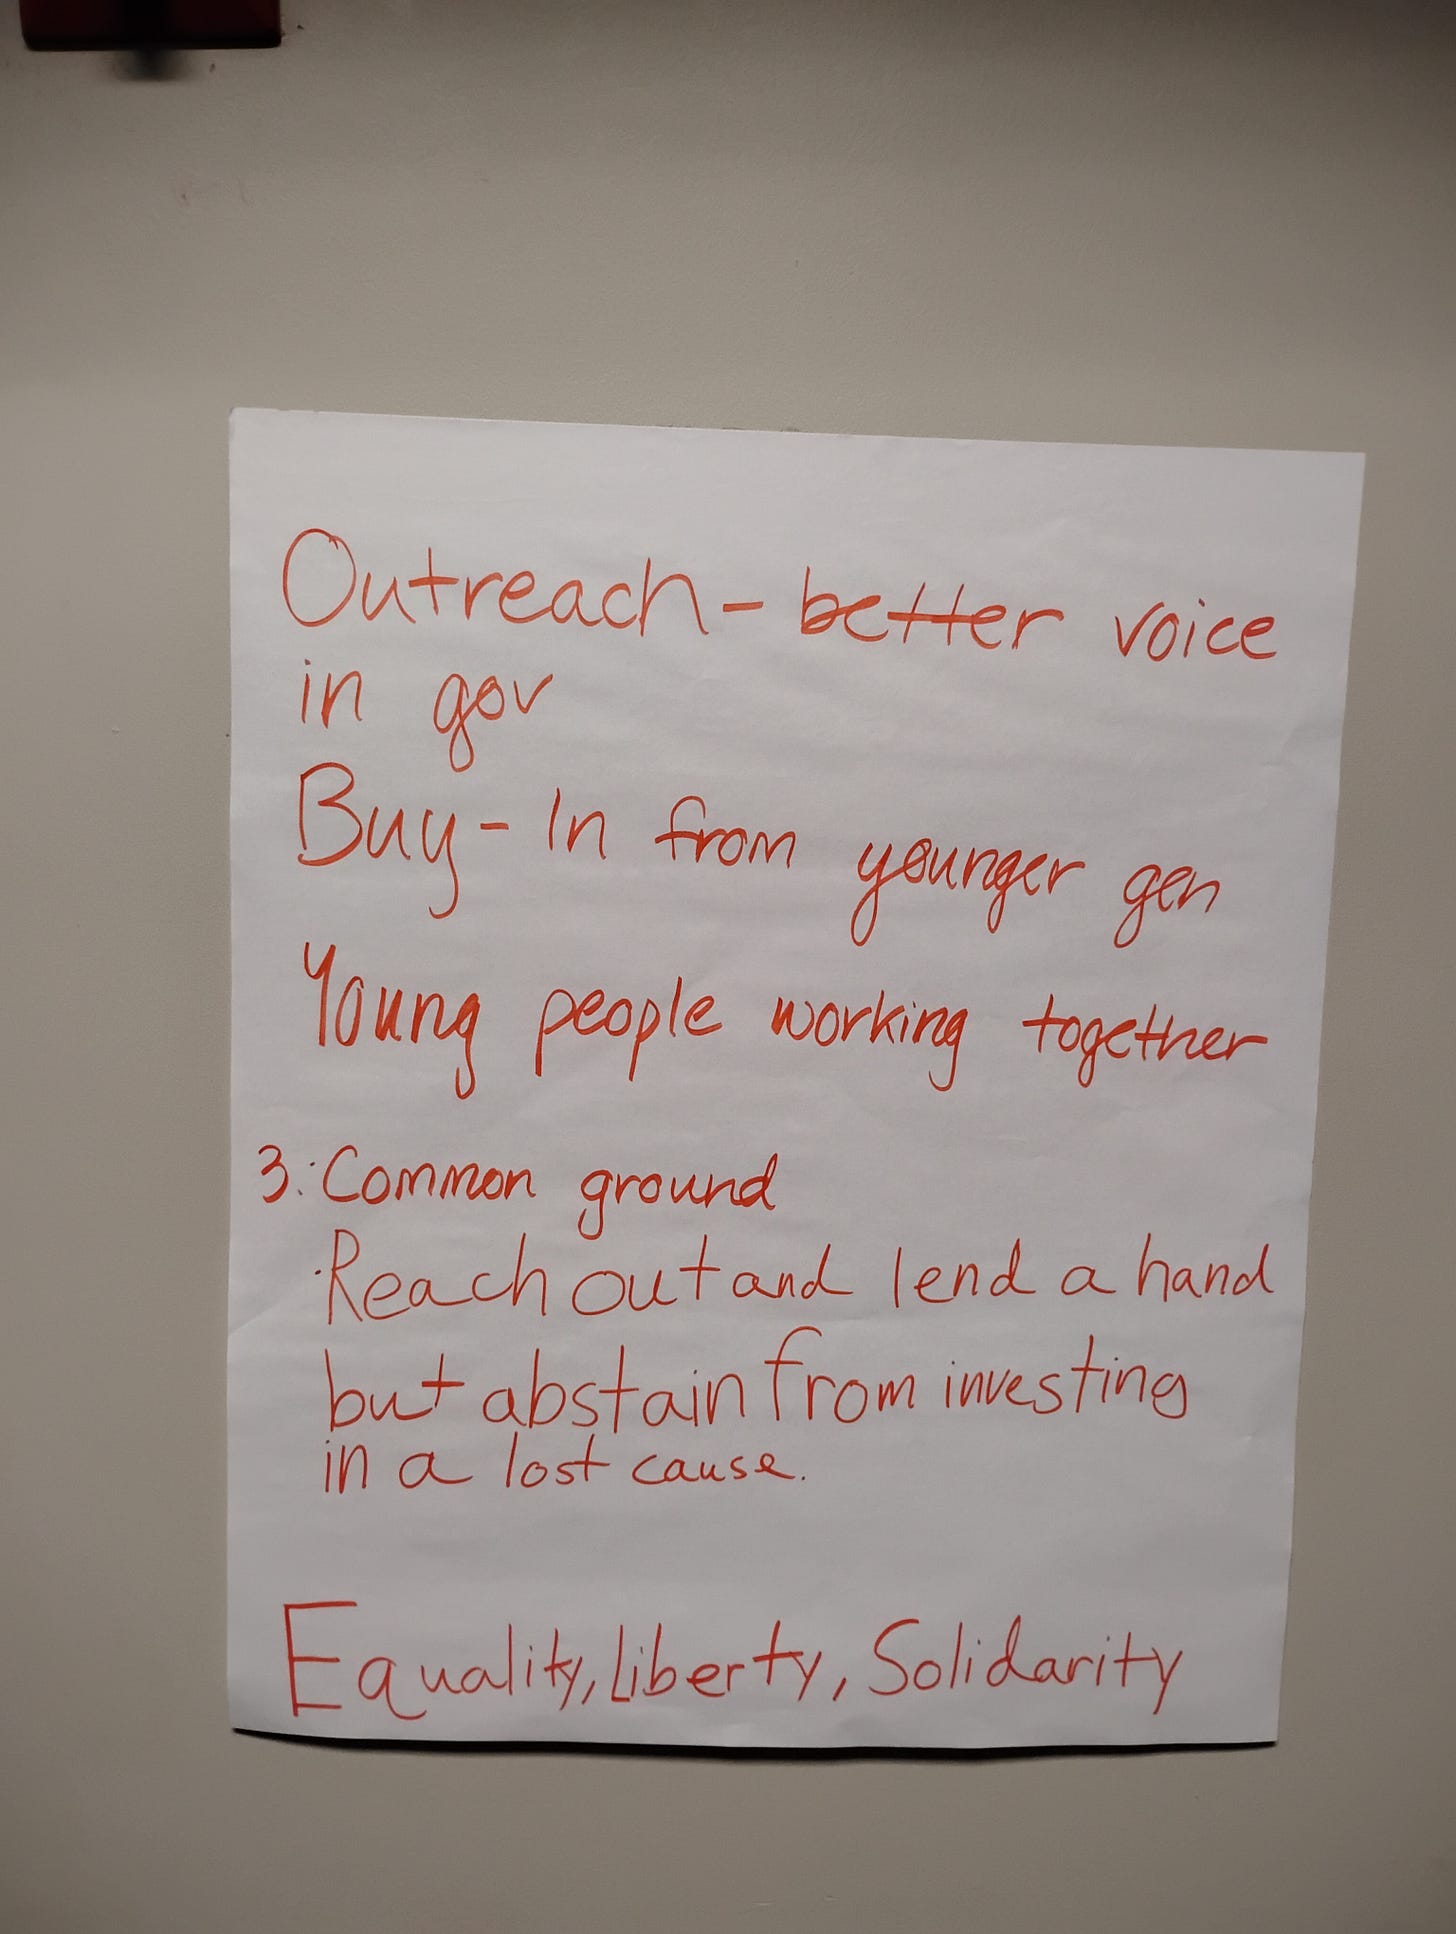 Outreach - better voice
in gov
Buy - In from younger gen
Young people working together
3. Common ground
· Reach out and lend a hand
but abstain from investing
in a lost cause.
Equality, Liberty, Solidarity